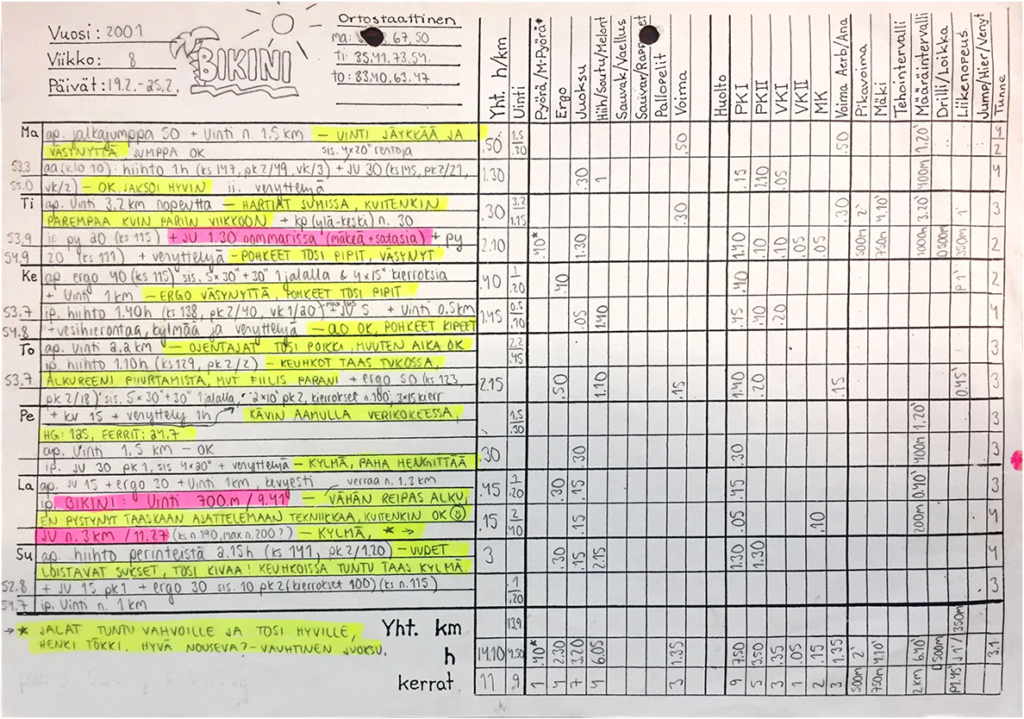 Vuosi: 2001
Viikko: 8
Päivät: 19.2.-25.2.
BIKINI
Ortostaattinen
ma: 67,50
Ti: 35.41.73.54.
to: 83.40.63.47
Yht. h/km
Uinti
Pyörä/M.Pyörä*
Ergo
Juoksu
Hiih/Sautu/Melont
Sauvak/Vaellus
Pallopelit
Voima
Huolto
PKI
PKII
VKI
VKII
MK
Voima Aerb/Ana
Pikavoima
Mäki
Tehointervalli
Määräintervalli
Drilli/Loikka
Liikenopeus
Jump/Hier/Venyt
Tunne
Ma ap. jalkajumppa 50 + Uinti n. 1.5 km – UINTI JÄYKKÄÄ JA .50 1.5 .50 .50 1.20' 4
VÄSYNYTTÄ JUMPPA OK sis. 4x20" rentoja .30 2
53.3 aa (klo 10): hiihto 1h (ks 147, pk2/49, vk/3) + JU 30 (ks 145, pk2/21, 1.30 .30 1 .15 1.10 .05 400m 4
vk/2) – OK, JAKSOI HYVIN ii. venyttelyä
Ti ap. Uinti 3.2 km nopeutta – HARTIAT JUMISSA, KUITENKIN .30 3.2 .30 .30 2' 4.10' 3.20' 1' 3
PAREMPAA KUIN PARIIN VIIKKOON + kp (ylä-keski) n. 30 1.15
53.9 ip. py 20 (ks 115) + JU 1.30 pommarissa (mäkeä + satasia) + py 2.10 .10* 1.30 1.40 .10 .10 .05 .05 500m 750m 1000m 0500m 350m 2
54.9 20 (ks 111) + venyttelyä – POHKEET TOSI PIPIT, VÄSYNYT
Ke ap ergo 40 (ks 115) sis. 5x30"+30" 1 jalalla & 4x15" kierroksia .40 1 .40 .40 P 1' 2
+ Uinti 1 km – ERGO VÄSYNYTTÄ, POHKEET TOSI PIPIT .20
53.7 ip. hiihto 1.40h (ks 138, pk2/40, vk1/20) + JU 5 + Uinti 0.5km 1.45 0.5 .05 1.40 .45 .40 .20 4
54.8 + vesihierontaa, kylmää ja venyttelyä – OLO OK, POHKEET KIPEET .10
To ap. Uinti 2.2 km – OJENTAJAT TOSI POIKKI, MUUTEN AIKA OK 2.2 3
ip. hiihto 1.10h (ks 129, pk2/2) – KEUHKOT TAAS TUKOSSA, .45
53.7 ALKUREENI PIIPPURTAMISTA, MUT FIILIS PARANI + ergo 50 (ks 123, 2.15 .50 1.10 .15 1.40 .20 .15 0.45' 3
pk 2/18) sis. 5x30"+30" 1 jalalla, 2x10' pk2, kierrokset n.100, 3x15 kierr
Pe + kv 15 + venyttely 1h KÄVIN AAMULLA VERIKOKEESSA, 1.5 1.20' 3
HG: 125, FERRIT: 27.7 .30
ap. Uinti 1.5 km – OK .30 .30 .30 400m 3
ip. JU 30 pk1, sis 4x20" + venyttelyä – KYLMÄ, PAHA HENGITTÄÄ
La ap. JU 15 + ergo 30 + Uinti 1km, kevyesti verraa n. 1.3 km .45 1 .30 .15 .45 0.40' 3
ip. BIKINI: Uinti 700m / 9.41 – VÄHÄN REIPAS ALKU, .20
EN PYSTYNYT TAASKAAN AJATTELEMAAN TEKNIIKKAA, KUITENKIN OK .15 2 .15 .05 .10 200m 4
JU n. 3 km / 11.27 (ks n.190, max n.200?) – KYLMÄ, * → .40
Su ap. hiihto perinteistä 2.15h (ks 141, pk2/1.20) – UUDET 3 .30 .15 2.15 1.30 1.30 4
LOISTAVAT SUKSET, TOSI KIVAA! KEUHKOISSA TUNTU TAAS KYLMÄ.
52.8 + JU 15 pk1 + ergo 30 sis. 10 pk2 (kierrokset 100) (ks n.115) 1 3
54.7 ip. Uinti n. 1 km .20
→ * JALAT TUNTU VAHVOILLE JA TOSI HYVILLE, Yht. km 13,9
HENKI TÖKKI. HYVÄ NOUSEVA?-VAUHTINEN JUOKSU. h 14.10 4.50 .10* 2.30 3.20 6.05 1.35 7.50 3.50 .35 .05 .15 1.35 500m 2' 750m 4.10' 2km 6.10' 0500m P1.45' J1'/350m 3.1
kerrat 11 9 1 4 7 4 3 9 5 3 1 2 3